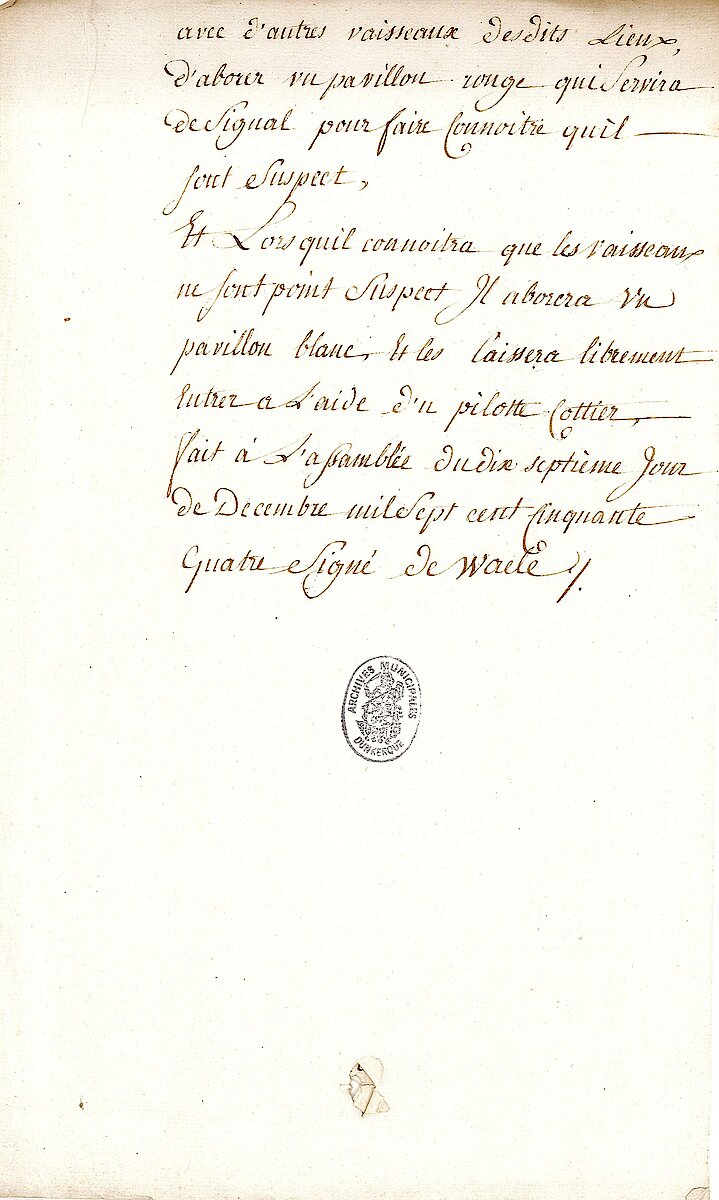 avec d'autres vaisseaux desdits Lieux,
d'aborer vn pavillon rouge qui Servira
de Signal pour faire Connoitre quil
sont Suspect,
Et Lorsquil connoitra que les vaisseaux
ne sont point Suspect Il aborera vn
pavillon blanc, Et les laissera librement
Entrer a L'aide d'n pilotte Cottier,
fait à L'assamblée du dix septième Jour
de Decembre mil Sept cent Cinquante
Quatre Signé de Waele /.
ARCHIVES MUNICIPALES
DUNKERQUE